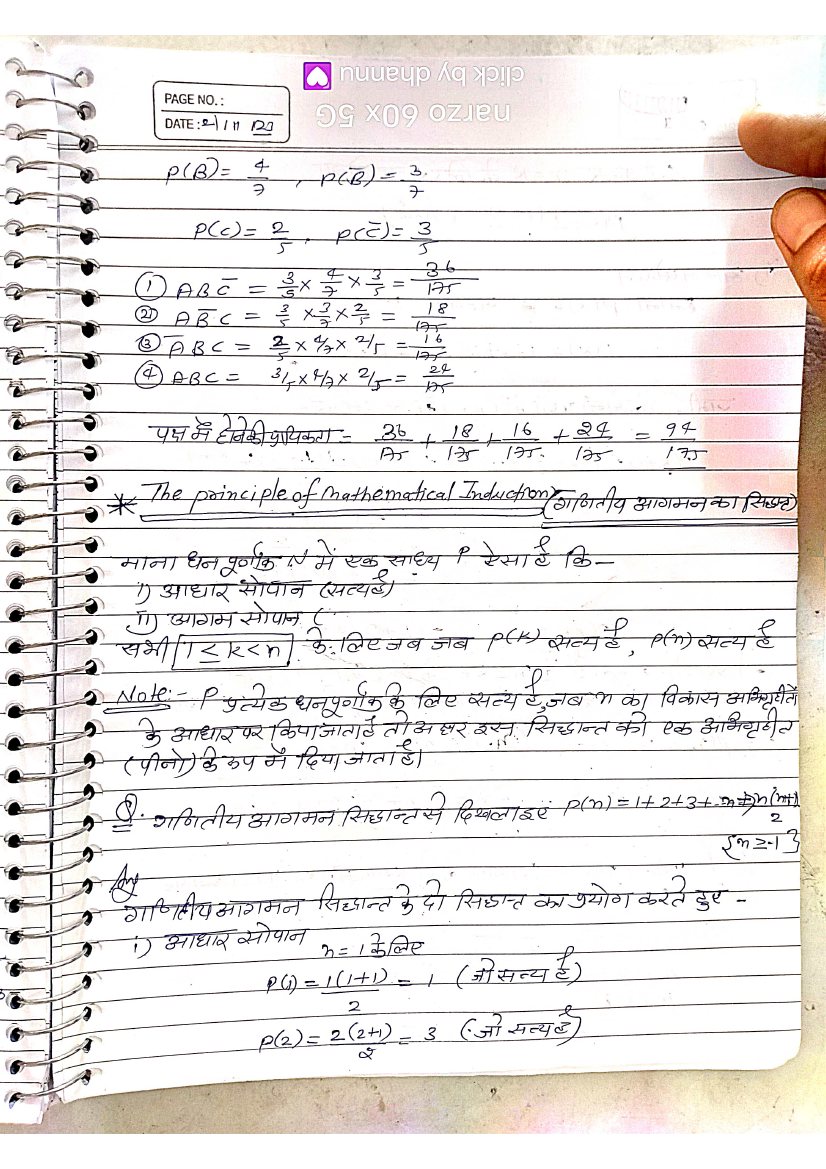 click by dhannu
narzo 60x 5G
PAGE NO.:
DATE: 21/11/23
P(B) = 4/7 , P(B̄) = 3/7
P(C) = 2/5 , P(C̄) = 3/5
① A B C̄ = 3/5 × 4/7 × 3/5 = 36/175
② A B̄ C = 3/5 × 3/7 × 2/5 = 18/175
③ Ā B C = 2/5 × 4/7 × 2/5 = 16/175
④ A B C = 3/5 × 4/7 × 2/5 = 24/175
पक्ष में होने की प्रायिकता = 36/175 + 18/175 + 16/175 + 24/175 = 94/175
* The principle of Mathematical Induction (गणितीय आगमन का सिद्धान्त)
माना धन पूर्णांक N में एक साध्य P ऐसा है कि –
i) आधार सोपान (सत्य है)
ii) आगम सोपान (
सभी 1 ≤ k < n के लिए जब जब P(k) सत्य है, P(n) सत्य है
Note:- P प्रत्येक धनपूर्णांक के लिए सत्य है, जब n का विकास अभिगृहीतों
के आधार पर किया जाता है तो अक्षर इस सिद्धान्त को एक अभिगृहीत
(पीनो) के रुप में दिया जाता है।
Q. गणितीय आगमन सिद्धान्त से दिखलाइए P(n) = 1+2+3+...n = n(n+1)/2
{n ≥ 1}
Ans
गणितीय आगमन सिद्धान्त के दो सिद्धान्त का प्रयोग करते हुए –
i) आधार सोपान
n = 1 के लिए
P(1) = 1(1+1)/2 = 1 (जो सत्य है)
P(2) = 2(2+1)/2 = 3 (जो सत्य है)